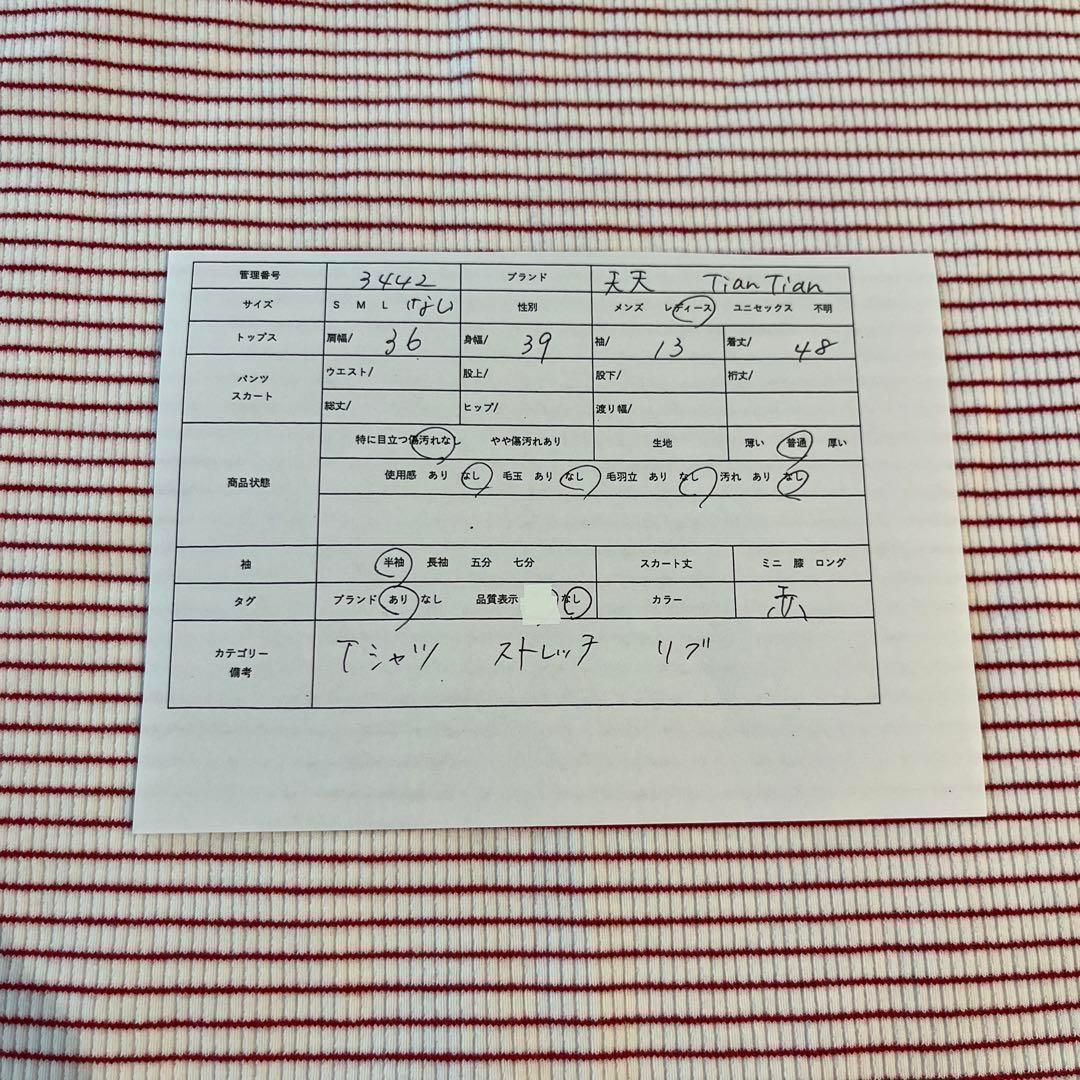 管理番号 3442 ブランド 天天 TianTian
サイズ S M L なし 性別 メンズ レディース ユニセックス 不明
トップス 肩幅/ 36 身幅/ 39 袖/ 13 着丈/ 48
パンツ スカート ウエスト/ 股上/ 股下/ 裄丈/
総丈/ ヒップ/ 渡り幅/
商品状態 特に目立つ傷汚れなし やや傷汚れあり 生地 薄い 普通 厚い
使用感 あり なし 毛玉 あり なし 毛羽立 あり なし 汚れ あり なし
袖 半袖 長袖 五分 七分 スカート丈 ミニ 膝 ロング
タグ ブランド あり なし 品質表示 なし カラー 赤
カテゴリー 備考 Tシャツ ストレッチ リブ